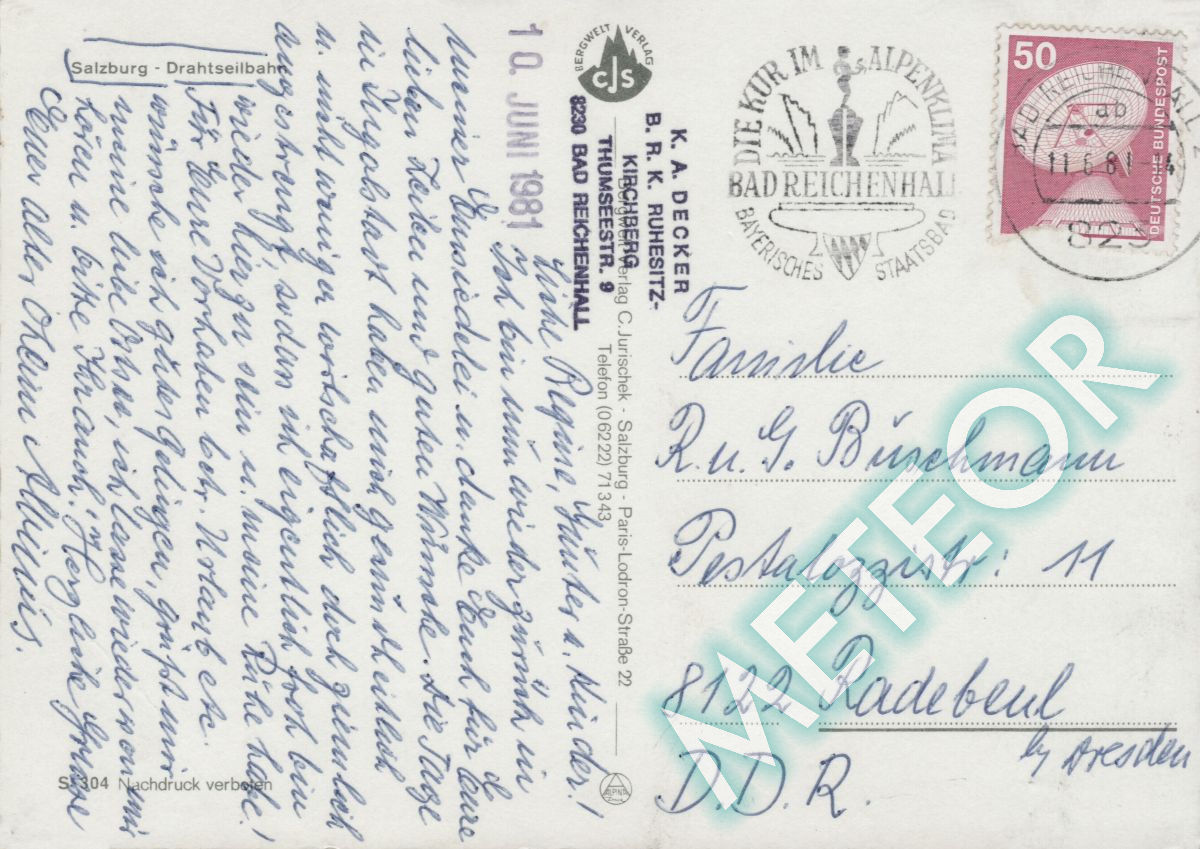 Salzburg - Drahtseilbahn
BERGWELT VERLAG
CJS
10. JUNI 1981
K. A. DECKER
B. R. K. RUHESITZ-
KIRCHBERG
THUMSEESTR. 9
8230 BAD REICHENHALL
Bergwelt Verlag C. Jurischek - Salzburg - Paris-Lodron-Straße 22
Telefon (06222) 71343
Liebe Regine, Günter u. Kinder!
Ich bin nun wieder zurück in
meiner Einsiedelei u. danke Euch für Eure
lieben Zeilen und guten Wünsche. Die Tage
in Ingolstadt haben mich gesundheitlich
u. nicht weniger wirtschaftlich doch ziemlich
angestrengt, sodass ich eigentlich froh bin
wieder hier zu sein u. meine Ruhe habe!
Für Eure Vorhaben betr. Urlaub etc.
wünsche ich gutes Gelingen, grüßt mir
meine liebe, ich lasse wieder von mir
hören u. bitte Ihr auch! Herzliche Grüße
Euer alter Oheim
DIE KUR IM ALPENKLIMA
BAD REICHENHALL
BAYERISCHES STAATSBAD
50
DEUTSCHE BUNDESPOST
ab
11.6.81
823
Familie
R. u. G. Büschmann
Pestalozzistr: 11
8122 Radebeul
by Dresden
D. D. R.
S 304 Nachdruck verboten
ALPINA
METEOR